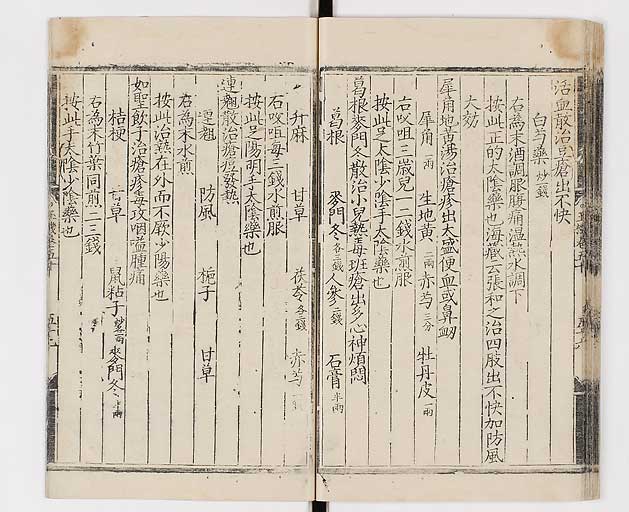 活血散治豆瘡出不快
白芍藥 炒 錢
右為末酒調服腹痛温熱水調下
按此正的太陰藥也海藏云張和之治四肢出不快加防風
大効
犀角地黄湯治瘡疹出大盛便血或鼻衂
犀角 一兩 生地黄 二兩 赤芍 三分 牡丹皮 一兩
右㕮咀三歲兒一二錢水煎服
按此足太陰少陰手太陰藥也
葛根麥門冬散治小兒熱毒班瘡出多心神煩悶
葛根 麥門冬 各三錢 人參 二錢 石膏 半兩
升麻 甘草 茯苓 各二錢 赤芍 一錢
右㕮咀每三錢水煎服
按此足陽明手太陰藥也
連翹散治瘡疹發熱
連翹 防風 梔子 甘草
右為末水煎
按此治熱在外而不厥少陽藥也
如聖飲子治瘡疹毒攻咽嗌腫痛
桔梗 甘草 鼠粘子 麥門冬 半兩
右為末竹葉同煎二三錢
按此手太陰少陰藥也